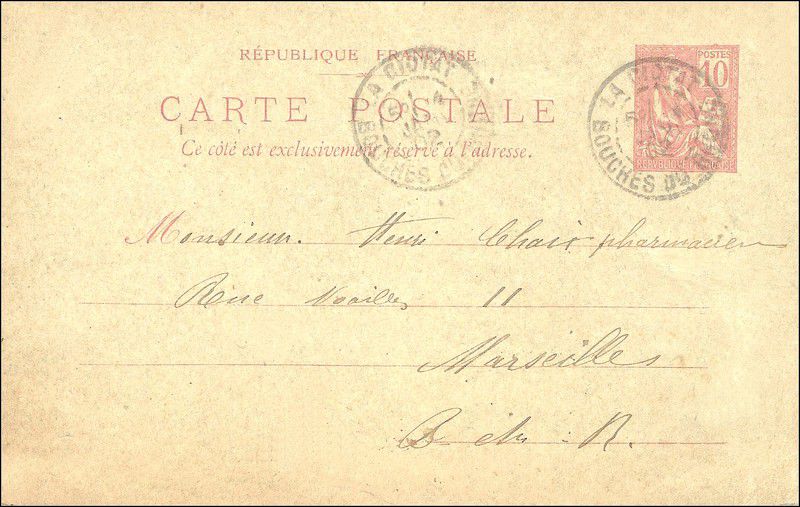 RÉPUBLIQUE FRANÇAISE
CARTE POSTALE
Ce côté est exclusivement réservé à l'adresse.
POSTES
10
RÉPUBLIQUE FRANÇAISE
LA CIOTAT
BOUCHES DU RHÔNE
LA CIOTAT
BOUCHES DU RHÔNE
Monsieur. Henri Chaix pharmacien
Rue Noailles 11
Marseilles
B du R.